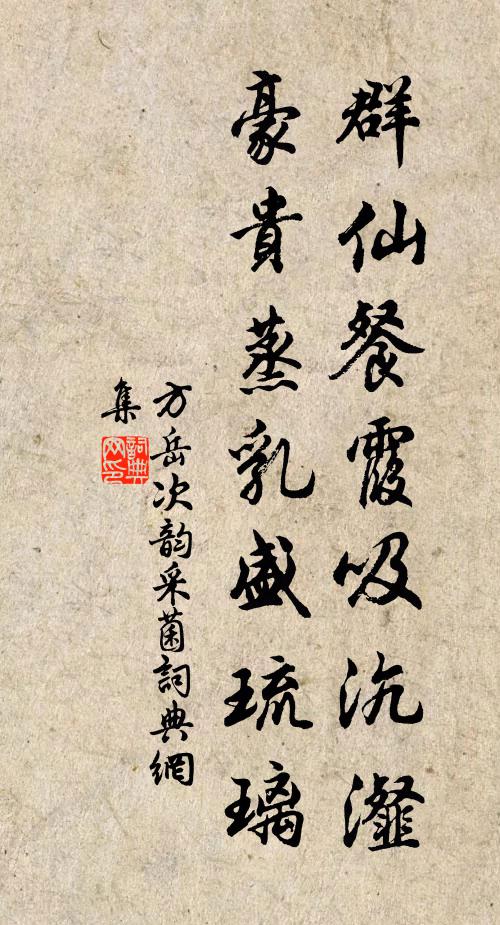 群仙餐霞吸沆瀣
豪貴蒸乳盛琉璃
方岳次韵采菌詞典網
集
詞典網印